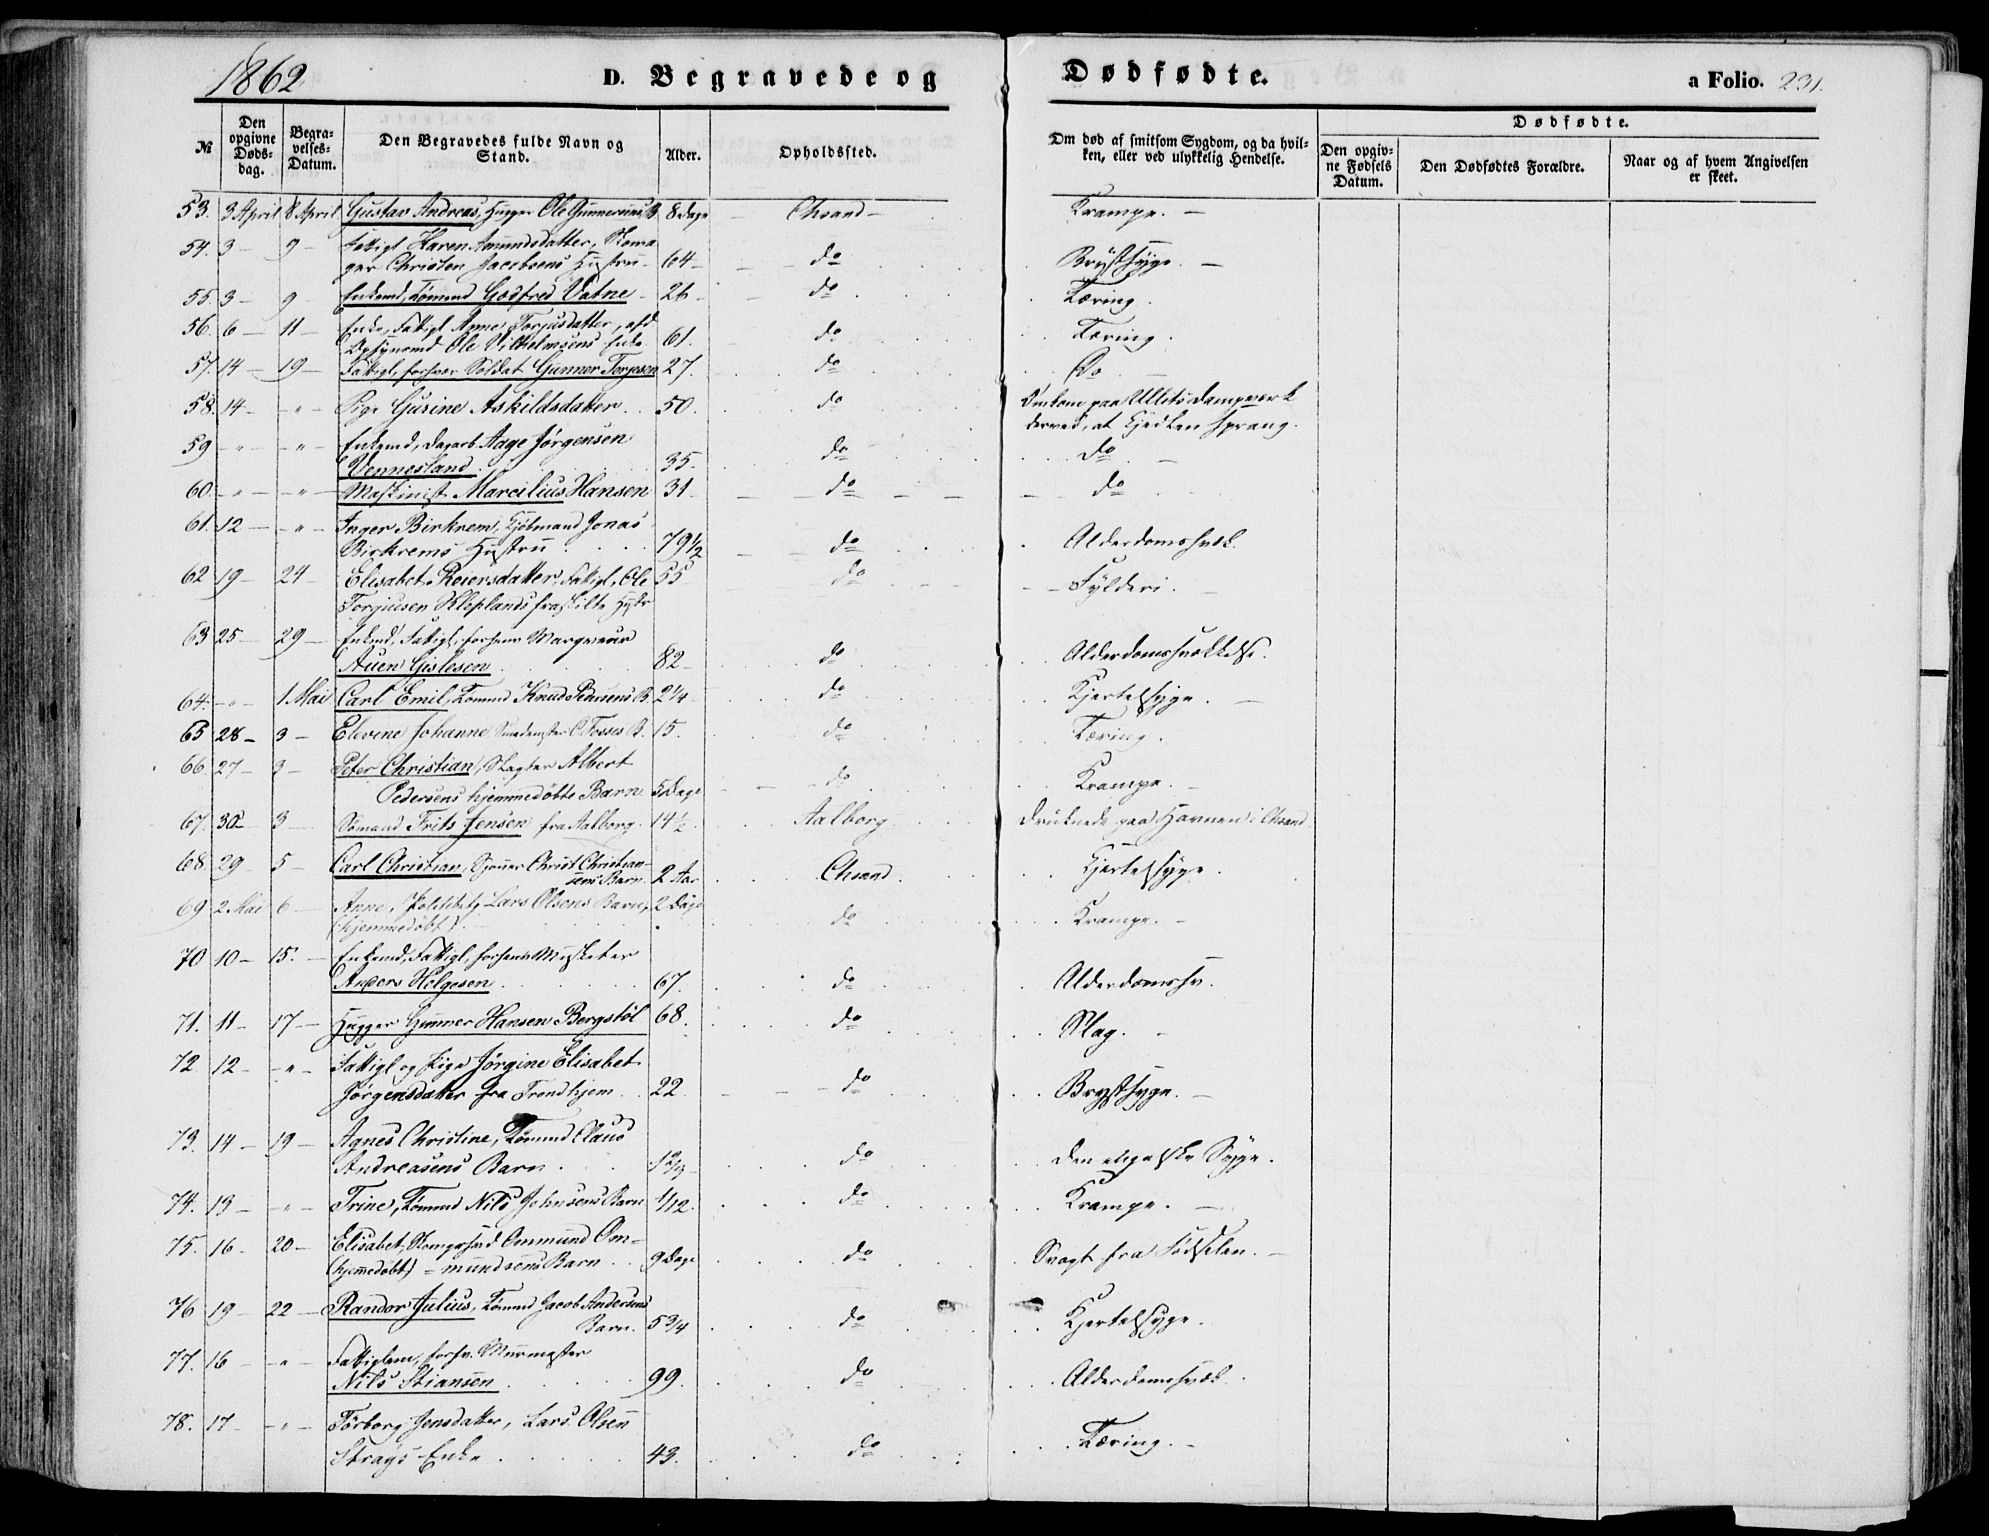 1862
D. Begravede og Dødfødte.
a Folio. 231.
№
Den opgivne Døds-dag.
Begra-velses-Datum.
Den Begravedes fulde Navn og Stand.
Alder.
Opholdssted.
Om død af smitsom Sygdom, og da hvil-ken, eller ved ulykkelig Hendelse.
Dødfødte.
Den opgiv-ne Fødsels Datum.
Den Dødfødtes Forældre.
Naar og af hvem Angivelsen er skeet.
53. 3 April 8 April Gustav Andreas, Hugger Ole Gunnersens B. 8 Dage – Chsand – Krampe. –
54. 3 – 9 – Fattigl Karen Amundsdatter, Skoma
ger Christen Jacobsens Hustru – 64 – – do Brystsyge. –
55. 3 – 9 – Enkemd, Tømmd Godfred Vatne – 26 – do Tæring.
56. 6 – 11 – Enke, Fattigl Anne Torjusdatter, afd
Opsynsmd Ole Vilhelmsens Enke. 61. do Tæring.
57. 14 – 19 – Fattigl, forhvær Soldat Gunner Torjesen 27. do Do
58. 14 – – " – Pige Gurine Askildsdatter. 50. do Omkom paa Ullits dampværk
derved, at Kjedlen sprang.
59 – " – – " – Enkemd, Dagarb Aage Jørgensen
Vennesland. 35. do do –
60. – " – – " – Maskinist Marcilius Hansen 31 – do – do
61. 12 – – " – Inger Birkrem, Kjøbmand Jonas
Birkrems Hustru 79 1/2 – do Alderdomssvæk.
62 19 – 24 – Elisabet Reiersdatter, Fattigl, Ole 55 do – Fylderi. –
Torjusen Kleplands fraskilte Hustr
63 25 – 29 – Enkemd, Fattigl, forhenv
Auen Gislesen 82 – do Alderdomssvækkelse.
64. – " – 1 Mai Carl Emil, Tømmd Knud Pedersens B. 2 1/4 do Kjertelsyge. –
65 28 – 3 – Elevine Johanne Smedmster C Fosses B. 15. do Tæring.
66. 27 – 3 – Peter Christian, Slagter Albert
Pedersens hjemmedøbte Barn. 5 Dage – – do Krampe. –
67. 30 – 3 – Sømand Frits Jensen fra Aalborg. 14 1/2. Aalborg Druknede paa Havnen i Chsand
68. 29 – 5 – Carl Christian, Christ Christian-
sens Barn. 2 Aar Chsand. Kjertelsyge.
69 2 Mai 6 – Anne, Politibetj Lars Olsens Barn, 2 Dage
(hjemmedøbt). – do Krampe. –
70 10 – 15. – Enkemd, Fattigl, forhenv Musketer
Anders Helgesen. 67. do Alderdomssv.
71. 11 – 17 – Hugger Gunner Hansen Bergstøl 68. do Slag. –
72 12 – – " – Fattigl og Pige Jørgine Elisabet
Jørgensdatter fra Trondhjem. 22. – – do Brystsyge. –
73. 14 – 19 – Agnes Christine, Tømmd Claus
Andreasens Barn. do Den engelske Syge.
74. 13 – – " – Trine, Tømmd Nils Johnsens Barn 1/12. do Krampe. –
75. 16 – 20 – Elisabet, Ommund Om-
(hjemmedøbt) – mundsens Barn. 9 Dage do Svagt fra Fødselen. –
76 19 – 22 – Randor Julius, Tømmd Jacob Andersens
Barn. 5 3/4 do Kjertelsyge.
77. 16 – – " – Fattiglem, forhv. Murmester
Nils Stiansen. 99. do Alderdomssvæk.
78. 17 – – " – Torborg Jensdatter, Lars Olsen
Strays Enke. 43. do Tæring. –